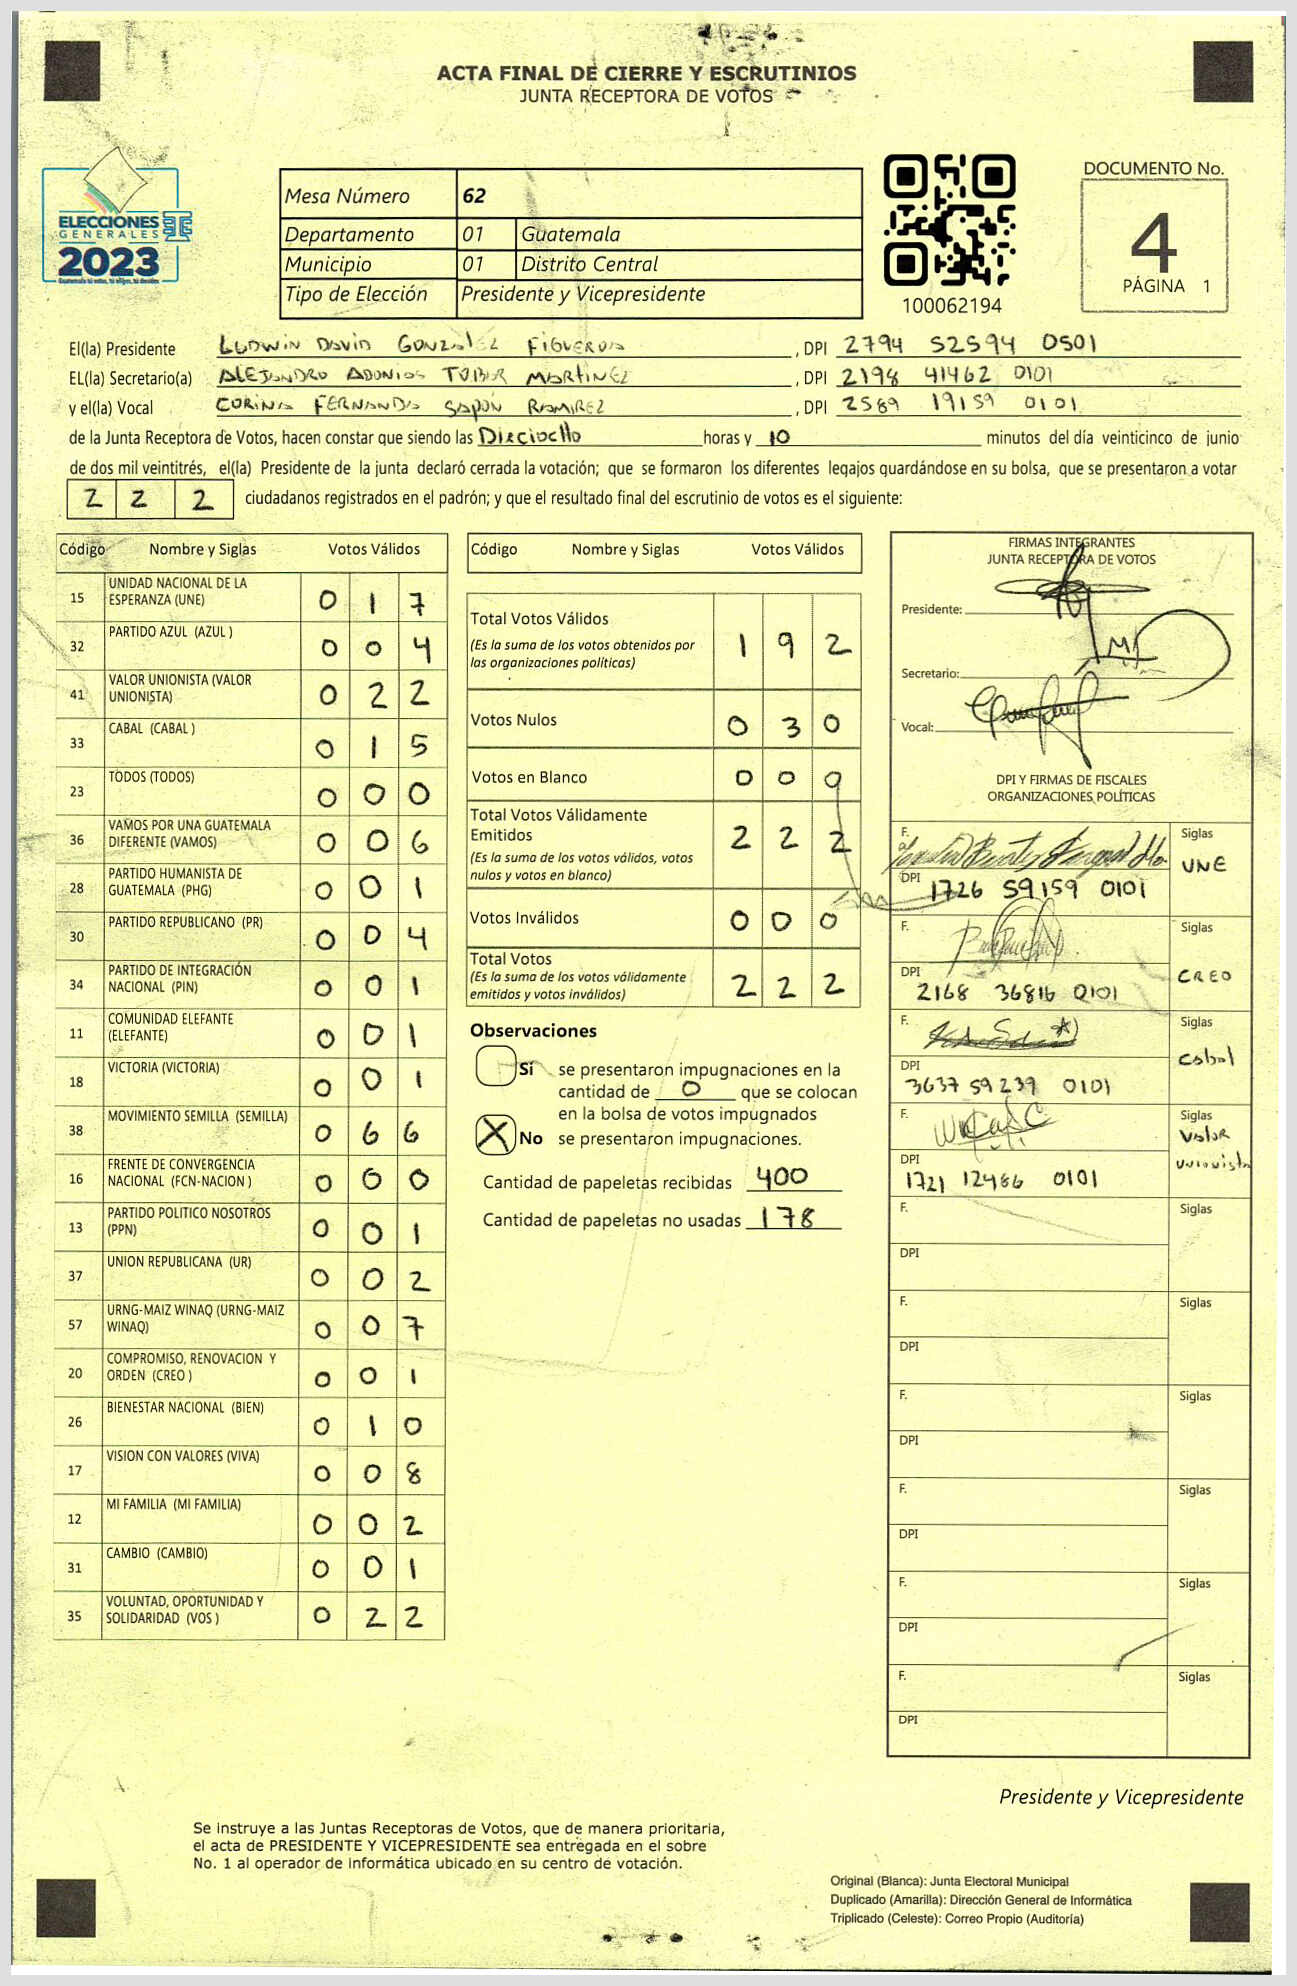 ACTA FINAL DE CIERRE Y ESCRUTINIOS
JUNTA RECEPTORA DE VOTOS
ELECCIONES
GENERALES
2023
Mesa Número 62
Departamento 01 Guatemala
Municipio 01 Distrito Central
Tipo de Elección Presidente y Vicepresidente
100062194
DOCUMENTO No.
4
PÁGINA 1
El(la) Presidente LUDWIN DAVID GONZALEZ FIGUEROA , DPI 2794 52594 0501
EL(la) Secretario(a) ALEJANDRO ADONIAS TOBAR MARTINEZ , DPI 2198 41462 0101
y el(la) Vocal CORINA FERNANDA SAPON RAMIREZ , DPI 2589 19159 0101
de la Junta Receptora de Votos, hacen constar que siendo las Dieciocho horas y 10 minutos del día veinticinco de junio
de dos mil veintitrés, el(la) Presidente de la junta declaró cerrada la votación; que se formaron los diferentes legajos guardándose en su bolsa, que se presentaron a votar
2 2 2 ciudadanos registrados en el padrón; y que el resultado final del escrutinio de votos es el siguiente:
Código Nombre y Siglas Votos Válidos
15 UNIDAD NACIONAL DE LA ESPERANZA (UNE) 0 1 7
32 PARTIDO AZUL (AZUL ) 0 0 4
41 VALOR UNIONISTA (VALOR UNIONISTA) 0 2 2
33 CABAL (CABAL ) 0 1 5
23 TODOS (TODOS) 0 0 0
36 VAMOS POR UNA GUATEMALA DIFERENTE (VAMOS) 0 0 6
28 PARTIDO HUMANISTA DE GUATEMALA (PHG) 0 0 1
30 PARTIDO REPUBLICANO (PR) 0 0 4
34 PARTIDO DE INTEGRACIÓN NACIONAL (PIN) 0 0 1
11 COMUNIDAD ELEFANTE (ELEFANTE) 0 0 1
18 VICTORIA (VICTORIA) 0 0 1
38 MOVIMIENTO SEMILLA (SEMILLA) 0 6 6
16 FRENTE DE CONVERGENCIA NACIONAL (FCN-NACION ) 0 0 0
13 PARTIDO POLITICO NOSOTROS (PPN) 0 0 1
37 UNION REPUBLICANA (UR) 0 0 2
57 URNG-MAIZ WINAQ (URNG-MAIZ WINAQ) 0 0 7
20 COMPROMISO, RENOVACION Y ORDEN (CREO ) 0 0 1
26 BIENESTAR NACIONAL (BIEN) 0 1 0
17 VISION CON VALORES (VIVA) 0 0 8
12 MI FAMILIA (MI FAMILIA) 0 0 2
31 CAMBIO (CAMBIO) 0 0 1
35 VOLUNTAD, OPORTUNIDAD Y SOLIDARIDAD (VOS ) 0 2 2
Código Nombre y Siglas Votos Válidos
Total Votos Válidos 1 9 2
(Es la suma de los votos obtenidos por
las organizaciones políticas)
Votos Nulos 0 3 0
Votos en Blanco 0 0 0
Total Votos Válidamente
Emitidos 2 2 2
(Es la suma de los votos válidos, votos
nulos y votos en blanco)
Votos Inválidos 0 0 0
Total Votos 2 2 2
(Es la suma de los votos válidamente
emitidos y votos inválidos)
Observaciones
Sí se presentaron impugnaciones en la
cantidad de 0 que se colocan
en la bolsa de votos impugnados
X No se presentaron impugnaciones.
Cantidad de papeletas recibidas 400
Cantidad de papeletas no usadas 178
FIRMAS INTEGRANTES
JUNTA RECEPTORA DE VOTOS
Presidente:
Secretario:
Vocal:
DPI Y FIRMAS DE FISCALES
ORGANIZACIONES POLÍTICAS
F. Siglas UNE
DPI 1726 59159 0101
F. Siglas CREO
DPI 2168 36816 0101
F. Siglas Cabal
DPI 3637 59239 0101
F. Siglas Valor Unionista
DPI 1721 12486 0101
F. Siglas
DPI
F. Siglas
DPI
F. Siglas
DPI
F. Siglas
DPI
F. Siglas
DPI
F. Siglas
DPI
Presidente y Vicepresidente
Se instruye a las Juntas Receptoras de Votos, que de manera prioritaria,
el acta de PRESIDENTE Y VICEPRESIDENTE sea entregada en el sobre
No. 1 al operador de informática ubicado en su centro de votación.
Original (Blanca): Junta Electoral Municipal
Duplicado (Amarilla): Dirección General de Informática
Triplicado (Celeste): Correo Propio (Auditoría)